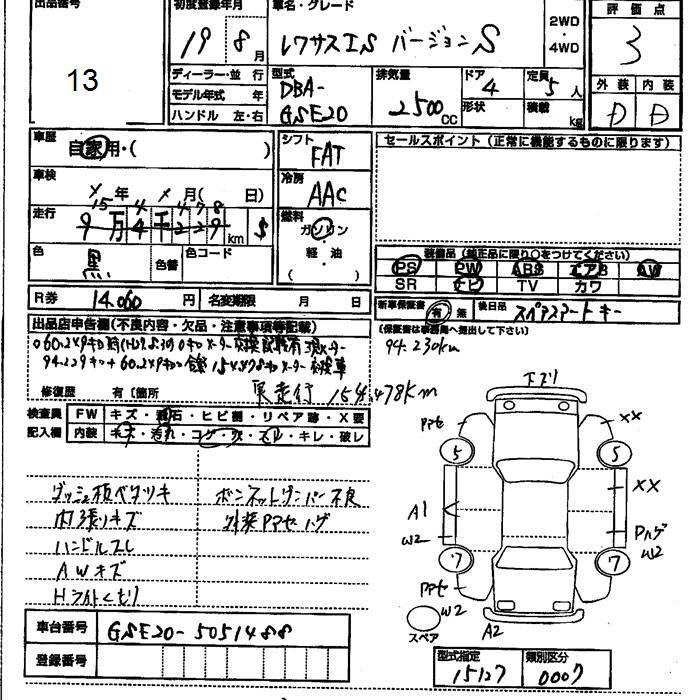 出品番号 初度登録年月 車名・グレード 2WD・4WD 評価点
13 19 8月 レクサスIS バージョンS 3
ディーラー・並行 型式 排気量 ドア 定員 外装 内装
モデル年式 年 DBA- 2500CC 4 5人 D D
ハンドル 左・右 GSE20 形状 積載 kg
車歴 自家用・( ) シフト FAT セールスポイント(正常に機能するものに限ります)
車検 年 月( 日) 冷房 AAC
走行 9万4千229km $ 燃料 ガソリン・軽油・( )
15 4 4 7 8
色 黒 色替 色コード
装備品(純正品に限り○をつけてください)
PS PW ABS エアB AW
SR ナビ TV カワ
R券 14.060円 名変期限 月 日
新車保証書 有 無 後日品 スペアスマートキー
(保証書は事務局へ提出して下さい)
94.230km
出品店申告欄(不良内容・欠品・注意事項等記載)
修復歴 有〔箇所
実走行 154,478km
検査員記入欄 FW キズ・飛石・ヒビ割・リペア跡・X要
内装 キズ・汚れ・コゲ・穴・スレ・キレ・破レ
ダッシュ板ベタツキ ボンネットダンパー不良
内張りキズ 外装Pアセ ハゲ
ハンドルスレ
AWキズ
Hライトくもり
下ズリ
Pアセ XX
5 5
XX
A1
W2 Pハゲ W2
7 7
Pアセ
W2
スペア A2
車台番号 GSE20-5051488
登録番号
型式指定 類別区分
15127 0007